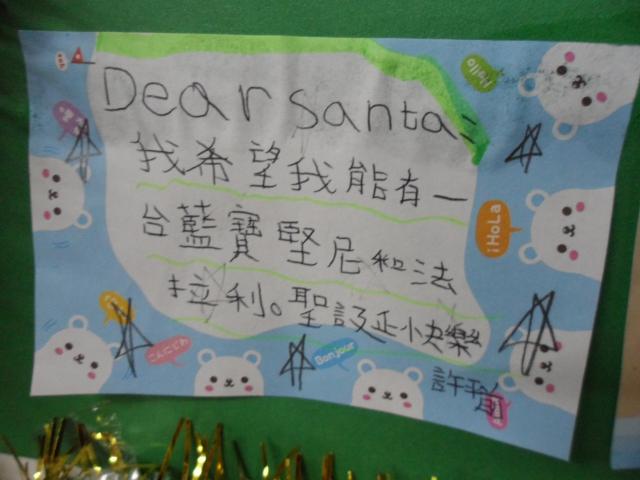 Dear santa:
我希望我能有一
台藍寶堅尼和法
拉利。聖誕快樂
許
Hello
¡HoLa
こんにちは
Bonjour